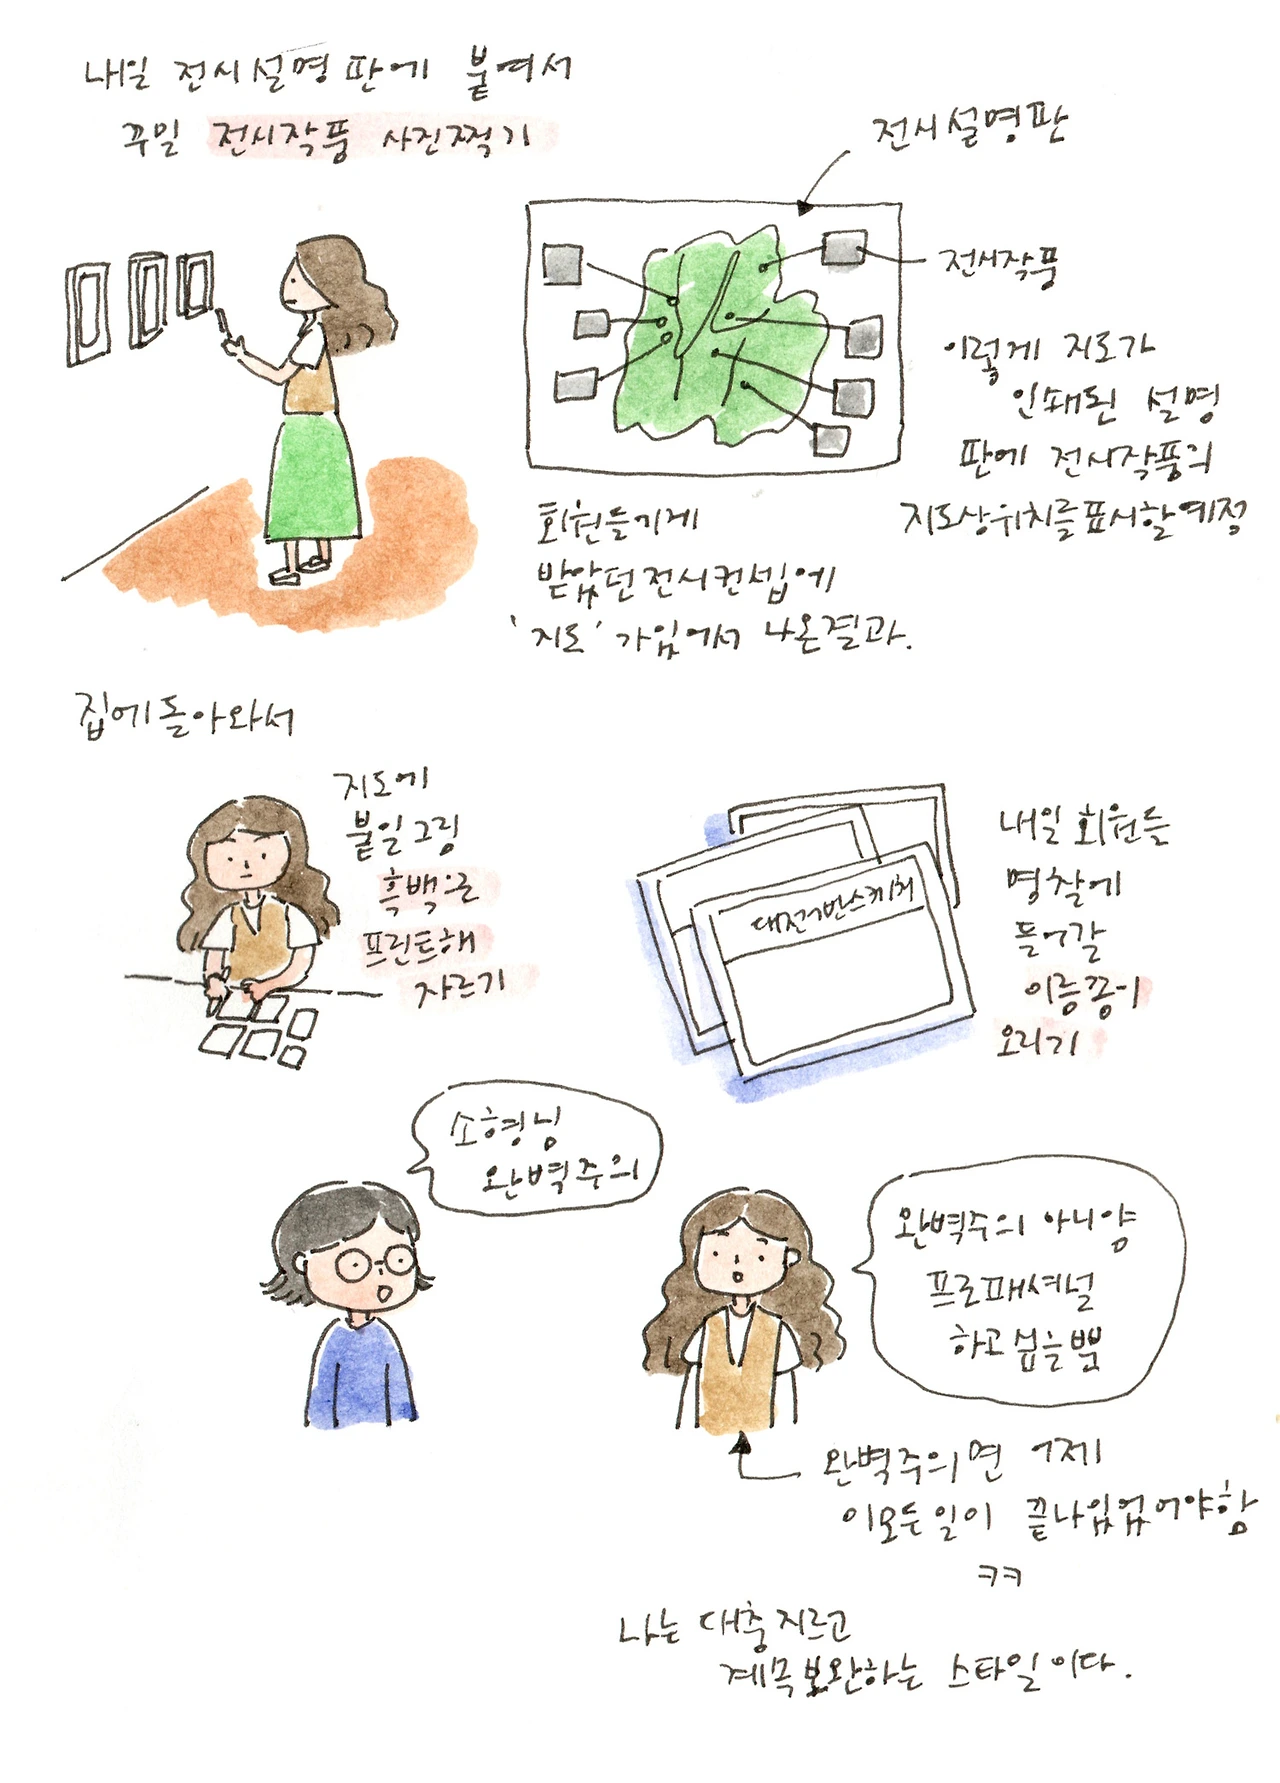 내일 전시설명판에 붙여서
꾸밀 전시작품 사진찍기
전시설명판
전시작품
이렇게 지도가
인쇄된 설명
판에 전시작품의
지도상위치를표시할예정
회원들에게
받았던전시컨셉에
'지도'가있어서 나온결과.
집에돌아와서
지도에
붙일그림
흑백으로
프린트해
자르기
대전어반스케치
내일 회원들
명찰에
들어갈
이름종이
오리기
소형님
완벽주의
완벽주의 아니양
프로패셔널
하고싶을뿐
완벽주의면 어제
이모든일이 끝나있었어야함
ㅋㅋ
나는 대충지르고
계속보완하는 스타일이다.